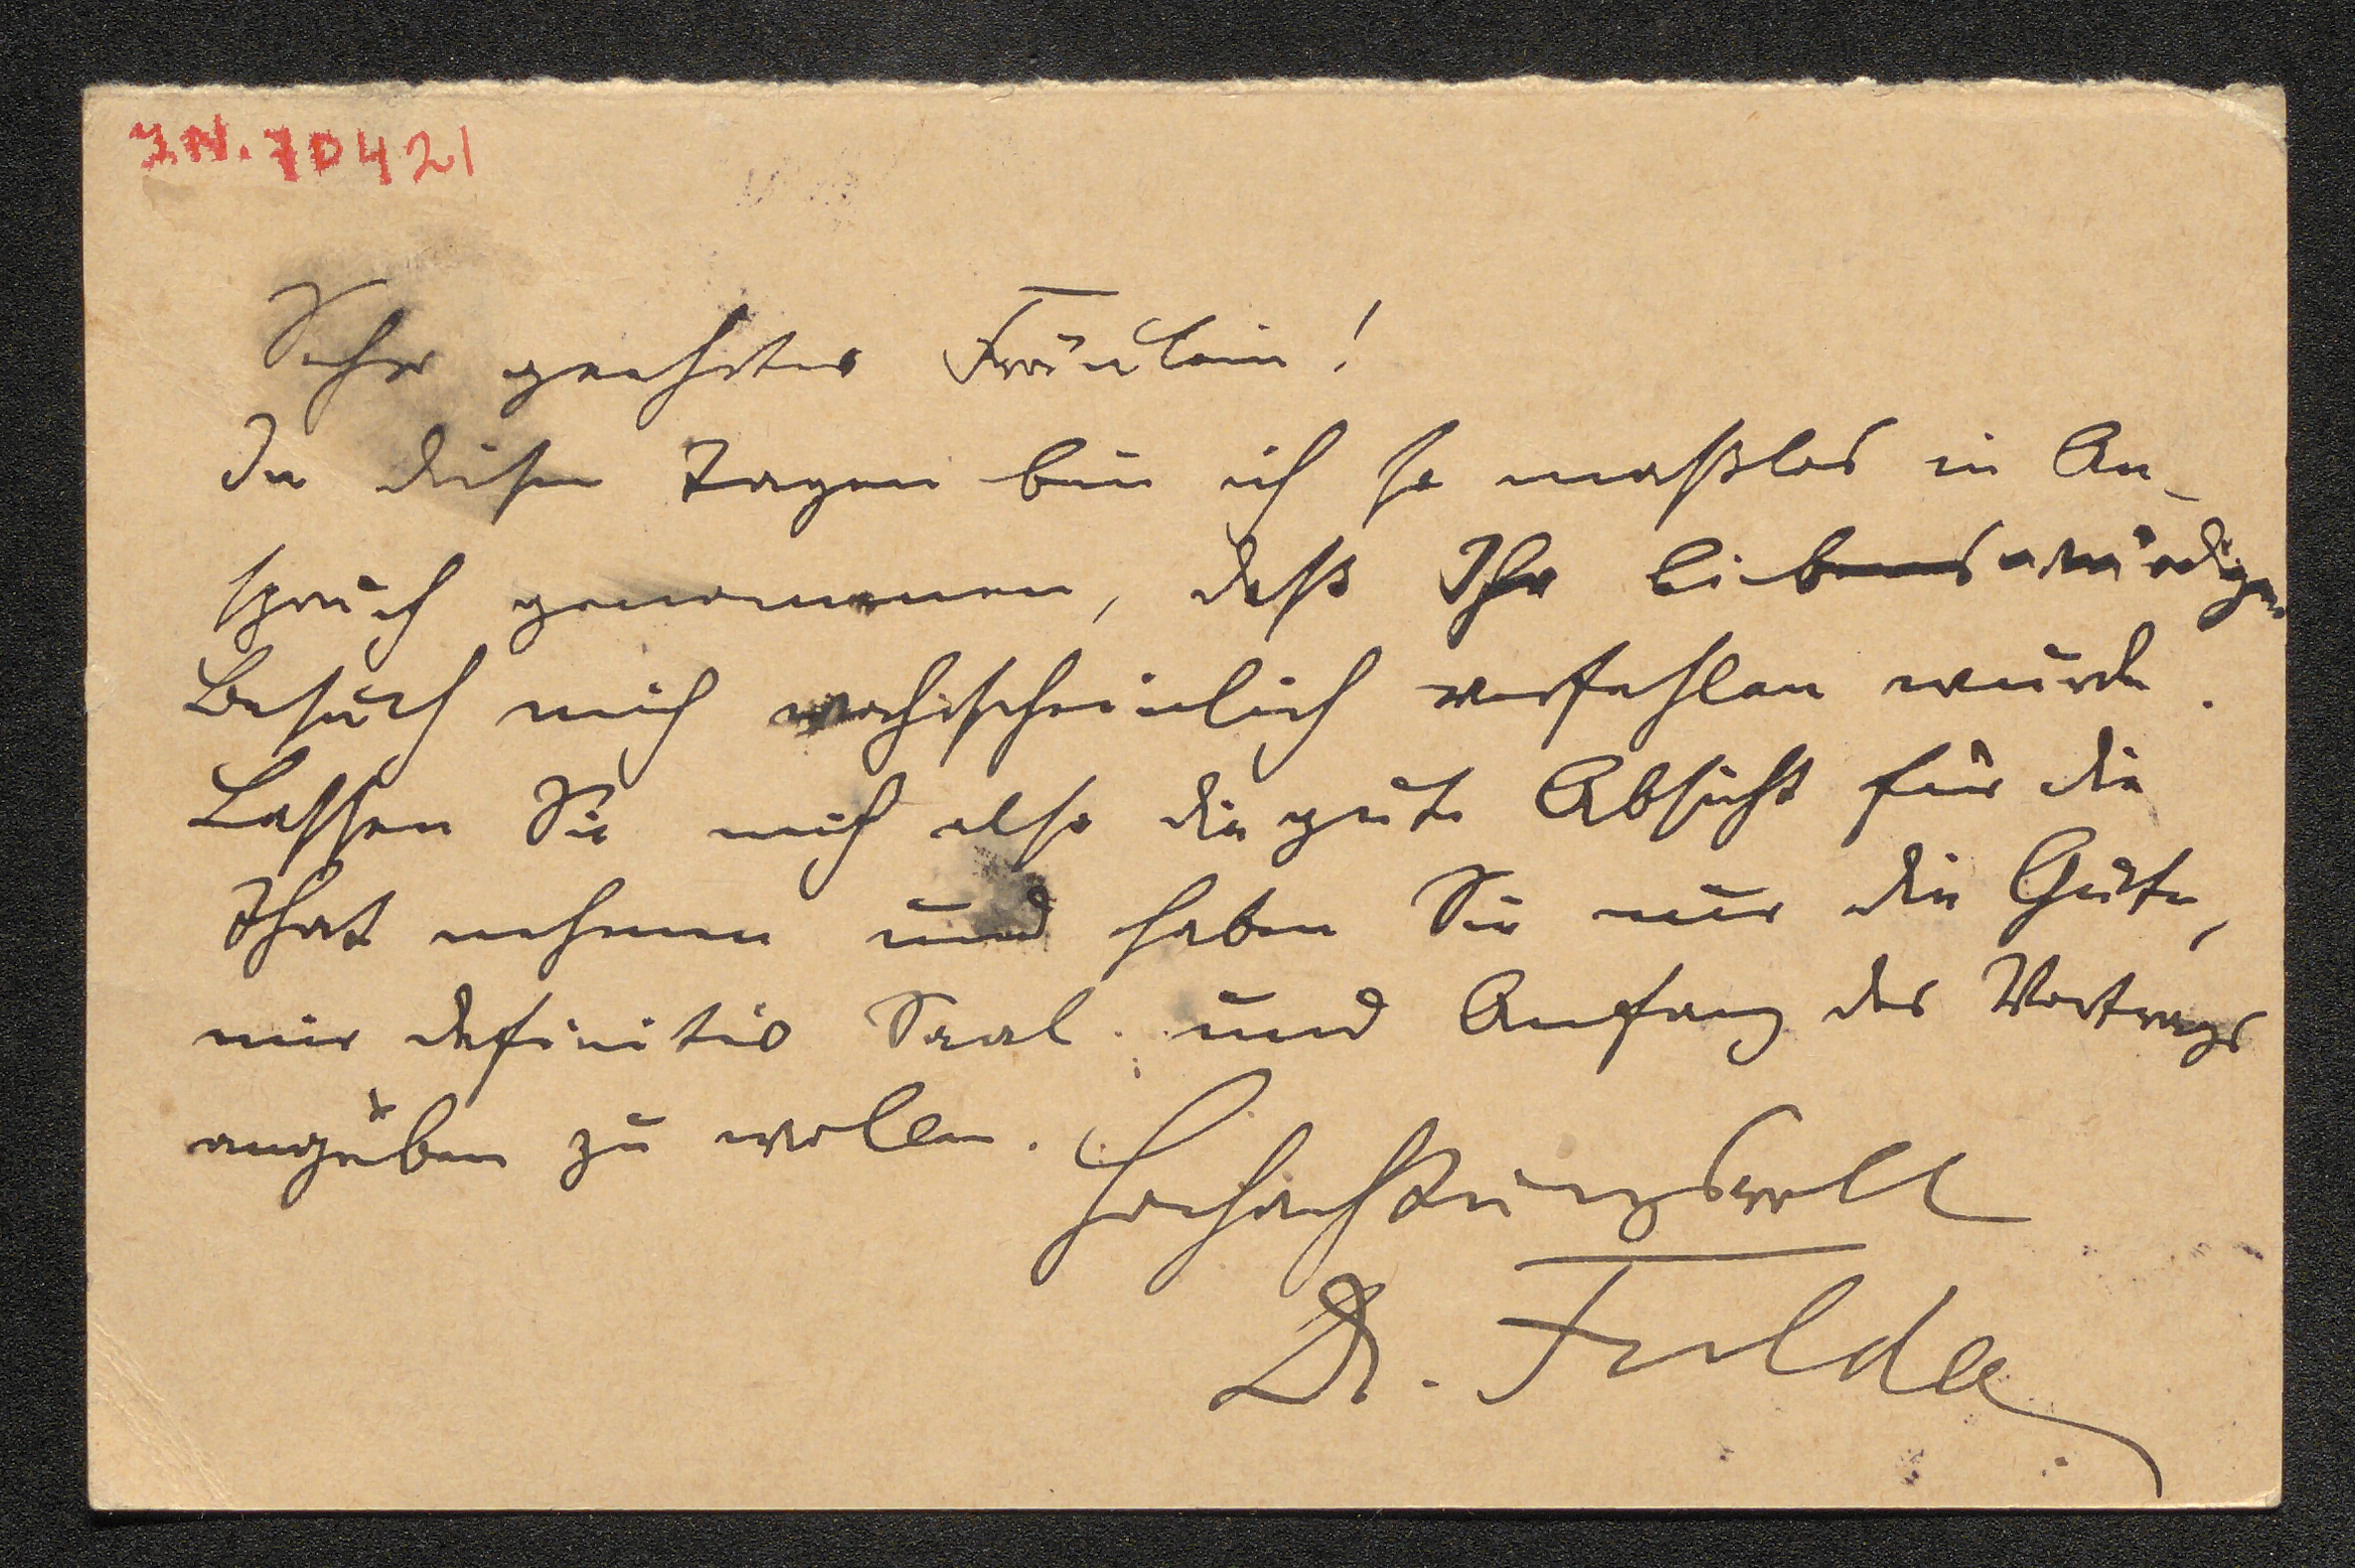 I.N. 70421
Sehr geehrtes Fräulein!
In diesen Tagen bin ich so maßlos in An-
spruch genommen, daß Ihr liebenswürdiger
Besuch mich wahrscheinlich verfehlen würde.
Lassen Sie mich also die gute Absicht für die
That nehmen und haben Sie nur die Güte,
mir definitiv Saal und Anfang des Vortrags
angeben zu wollen.
Hochachtungsvoll
Dr. Fulda